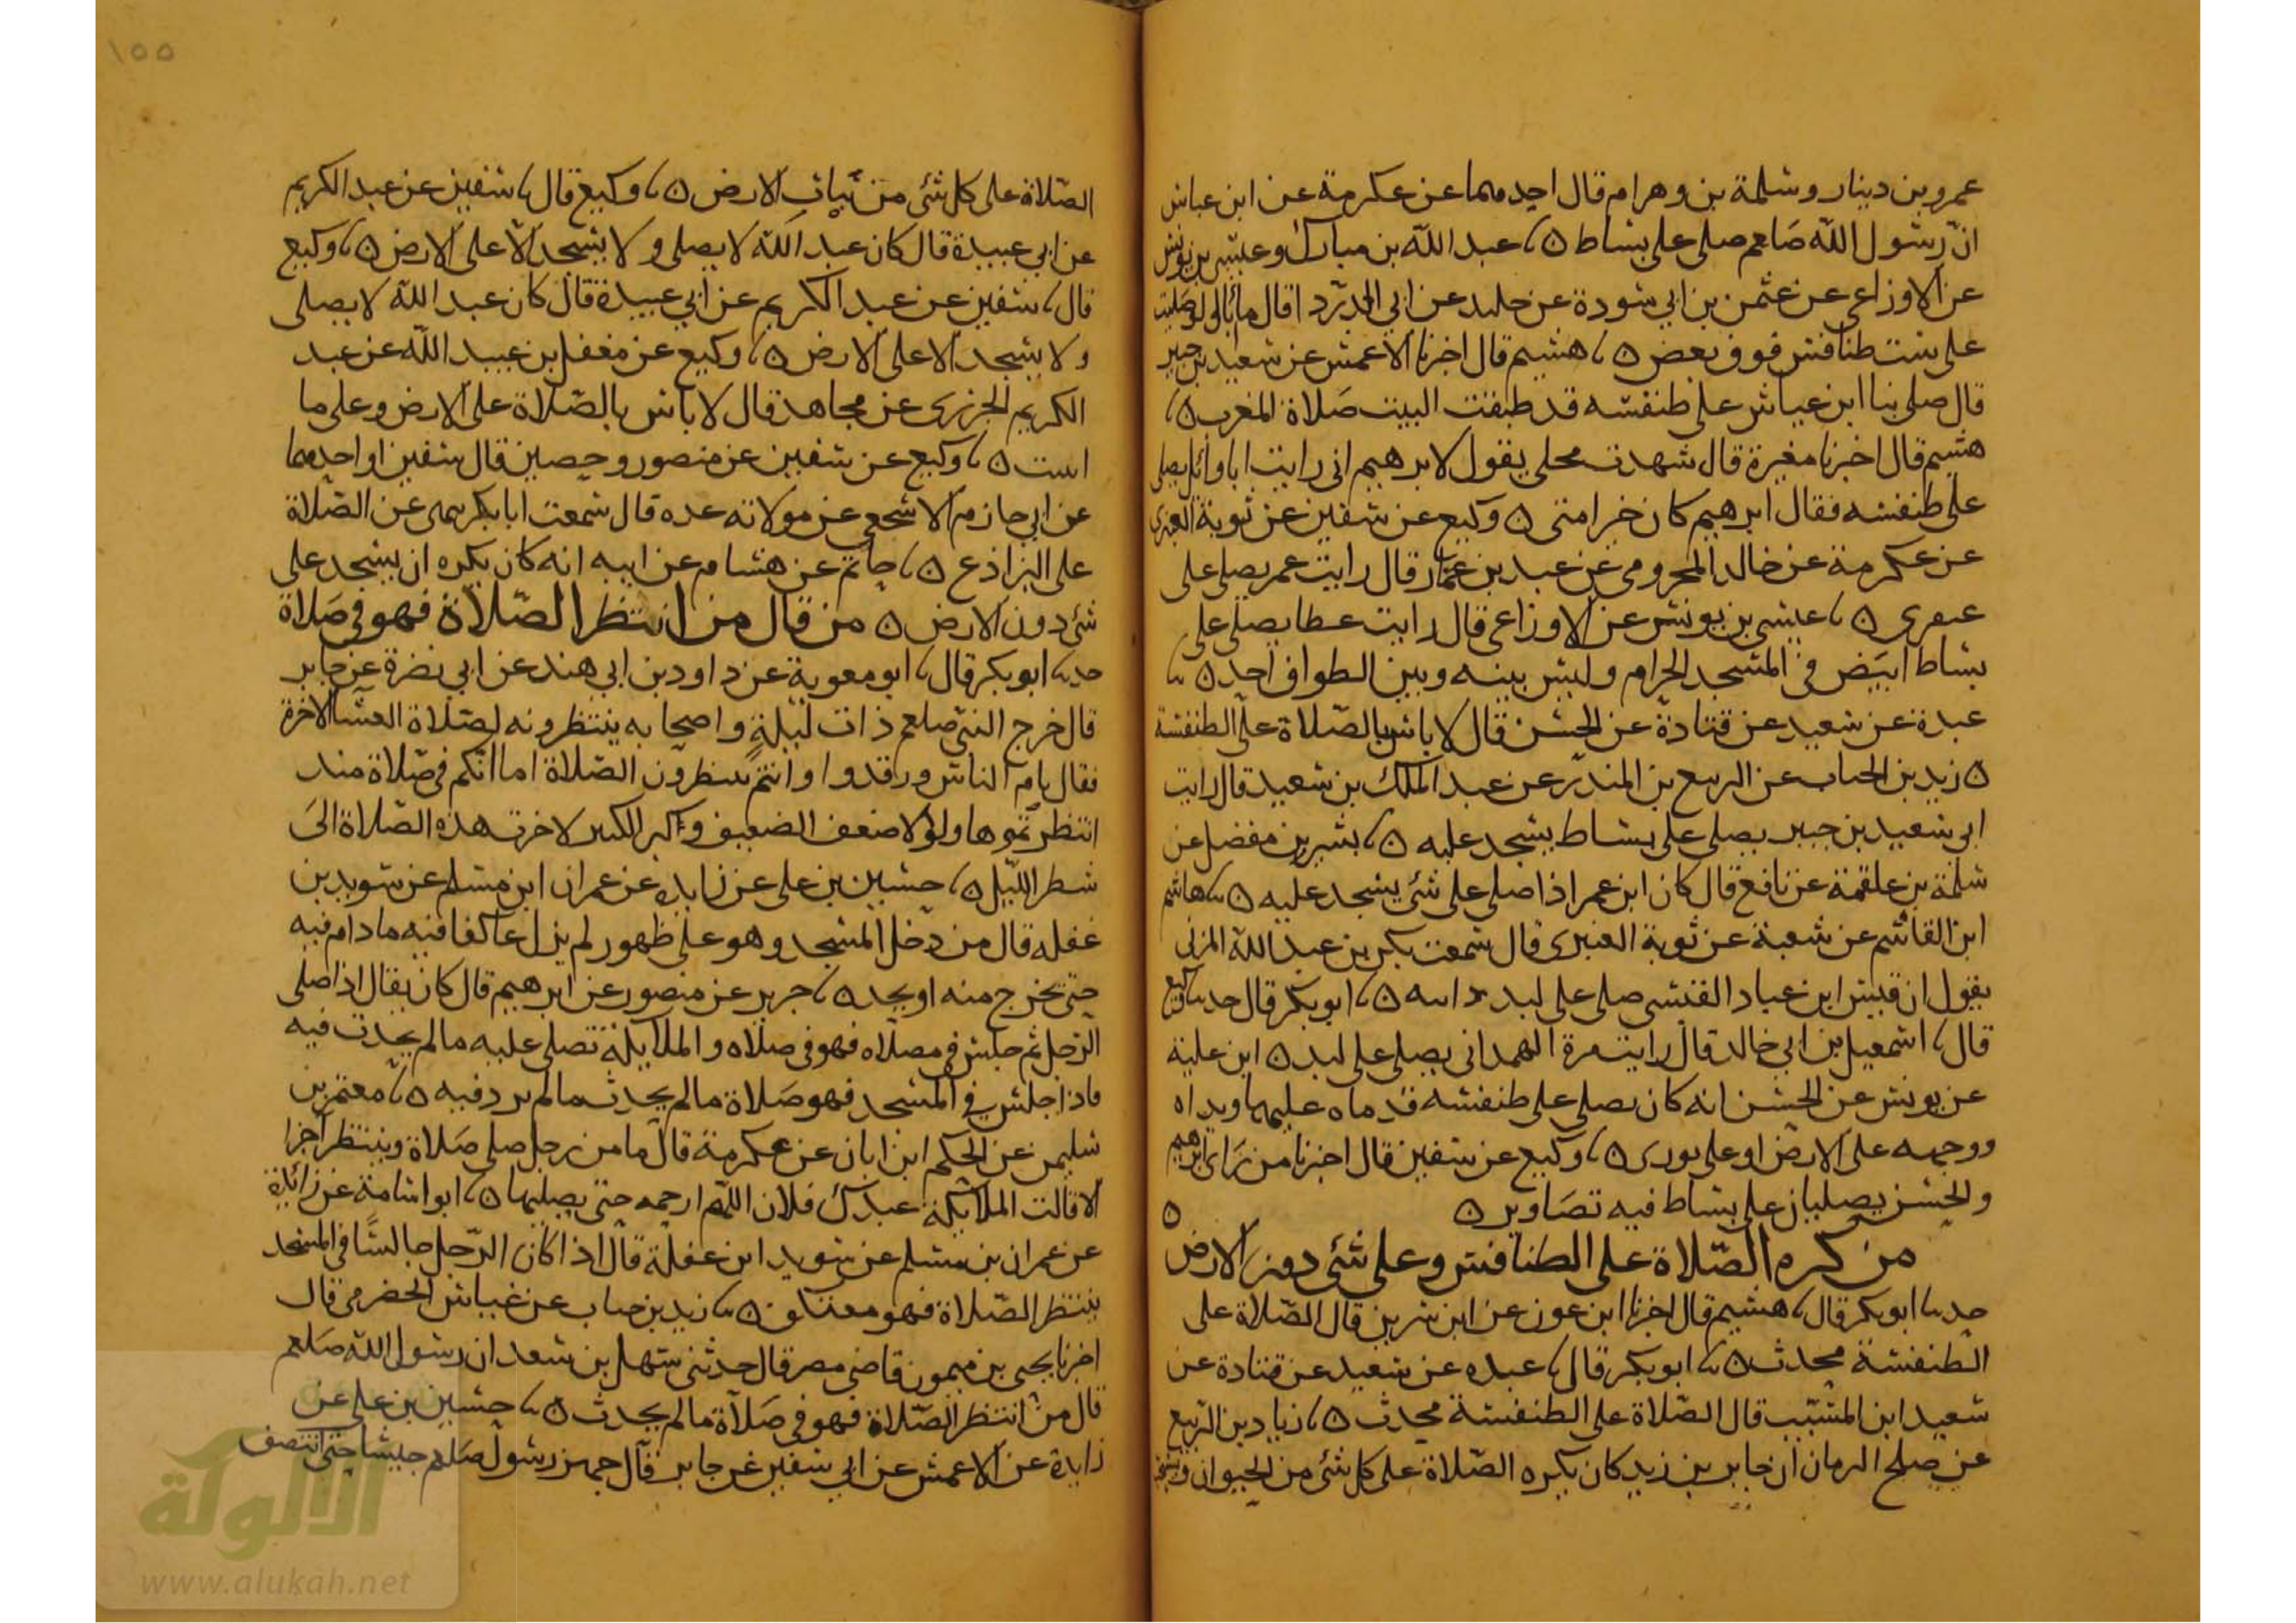 عمرو بن دينار وسلمة بن وهرام قال احدهما عن عكرمة عن ابن عباس
ان رسول الله صلعم صلى على بساط ٥ نا عبد الله بن مبارك وعيسى بن يونس
عن الاوزاعي عن عثمن بن ابي سودة عن خليد عن ابي الدردا قال ما ابالي لو صليت
على ست طنافس فوق بعض ٥ نا هشيم قال اخبرنا الاعمش عن سعيد بن جبير
قال صلى بنا ابن عباس على طنفسه قد طبقت البيت صلاة المغرب ٥ نا
هشيم قال اخبرنا مغيرة قال شهدت محلي يقول لابرهيم اني رايت ابا وائل يصلي
على طنفسه فقال ابرهيم كان خيرا مني ٥ وكيع عن سفين عن توبة العنبري
عن عكرمة عن خالد المخرومي عن عبد بن عمار قال رايت عمر يصلي على
عبقري ٥ نا عيسى بن يونس عن الاوزاعي قال رايت عطا يصلي على
بساط ابيض في المسجد الحرام وليس بينه وبين الطواف احد ٥ نا
عبدة عن سعيد عن قتادة عن الحسن قال لا باس بالصلاة على الطنفسة
٥ زيد بن الحباب عن الربيع بن المنذر عن عبد الملك بن سعيد قال رايت
ابي سعيد بن جبير يصلي على بساط يسجد عليه ٥ نا بشر بن مفضل عن
سلمة بن علقمة عن نافع قال كان ابن عمر اذا صلى على شئ يسجد عليه ٥ نا هاشم
ابن القاسم عن شعبة عن توبة العنبري قال سمعت بكر بن عبد الله المزني
يقول ان قيس ابن عباد القيسي صلى على لبد دابته ٥ نا ابو بكر قال حدثنا وكيع
قال نا اسمعيل بن ابي خالد قال رايت مرة الهمداني يصلي على لبد ٥ ابن علية
عن يونس عن الحسن انه كان يصلي على طنفسه قدماه عليها ويداه
ووجهه على الارض او على بوري ٥ نا وكيع عن سفين قال اخبرنا من راى ابرهيم
والحسن يصليان على بساط فيه تصاوير ٥ ٥
من كره الصلاة على الطنافس وعلى شئ دون الارض
حدثنا ابو بكر قال نا هشيم قال اخبرنا ابن عون عن ابن سرين قال الصلاة على
الطنفسة محدث ٥ نا ابو بكر قال نا عبده عن سعيد عن قتادة عن
سعيد ابن المسيب قال الصلاة على الطنفسة محدث ٥ نا زياد بن الربيع
عن صلح الرمان ان جابر بن زيد كان يكره الصلاة على كل شئ من الحيوان ويستحب
١٥٥
الصلاة على كل شئ من نبات الارض ٥ نا وكيع قال نا سفين عن عبد الكريم
عن ابي عبيدة قال كان عبد الله لا يصلي ولا يسجد الا على الارض ٥ نا وكيع
قال نا سفين عن عبد الكريم عن ابي عبيدة قال كان عبد الله لا يصلي
ولا يسجد الا على الارض ٥ نا وكيع عن مغفل بن عبيد الله عن عبد
الكريم الجزري عن مجاهد قال لا باس بالصلاة على الارض وعلى ما
است ٥ نا وكيع عن سفين عن منصور وحصين قال سفين او احدهما
عن ابي حازم الاشجعي عن مولاته عده قال سمعت ابا بكر نهى عن الصلاة
على البراذع ٥ نا حاتم عن هشام عن ابيه انه كان يكره ان يسجد على
شئ دون الارض ٥ من قال من انتظر الصلاة فهو في صلاة
حدثنا ابو بكر قال نا ابو معوية عن داود بن ابي هند عن ابي نضرة عن جابر
قال خرج النبي صلعم ذات ليلة واصحابه ينتظرونه لصلاة العشا الاخرة
فقال نام الناس ورقدوا وانتم تنظرون الصلاة اما انكم في صلاة منذ
انتظرتموها ولولا ضعف الضعيف وكبر الكبير لاخرت هذه الصلاة الى
شطر الليل ٥ نا حسين بن علي عن زايده عن عمران ابن مسلم عن سويد بن
غفله قال من دخل المسجد وهو على ظهور لم يزل عاكفا فيه ما دام فيه
حتى يخرج منه او يحد ٥ نا جرير عن منصور عن ابرهيم قال كان يقال اذا صلى
الرجل ثم جلس في مصلاه فهو في صلاه والملايكة تصلي عليه ما لم يحدث فيه
فاذا جلس في المسجد فهو صلاة ما لم يحدث ما لم يرد فيه ٥ نا معتمر بن
سليمن عن الحكم ابن ابان عن عكرمة قال ما من رجل صلى صلاة وينتظر اخرا
الا قالت الملائكة عبدك فلان اللهم ارحمه حتى يصليها ٥ نا ابو اسامة عن زائدة
عن عمران بن مسلم عن سويد ابن غفلة قال اذا كان الرجل جالسا في المسجد
ينتظر الصلاة فهو معتكف ٥ نا زيد بن حباب عن عياش الحضرمي قال
اخبرنا يحيى بن ميمون قاضي مصر قال حدثني سهل بن سعد ان رسول الله صلعم
قال من انتظر الصلاة فهو في صلاة ما لم يحدث ٥ نا حسين بن علي عن
زايدة عن الاعمش عن ابي سفين عن جابر قال جهز رسول صلعم جيشا حتى انتصف
الألوكة
www.alukah.net